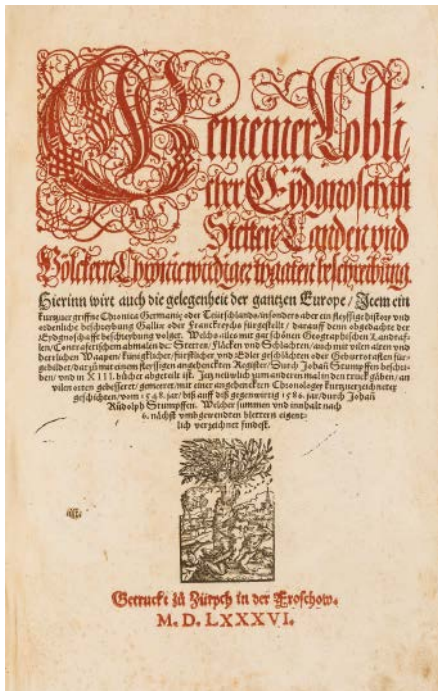 Gemeiner Lobli
cher Eydgnoschafft
Stetten Landen vnd
Völckern Chronickwirdiger thaaten beschreybung.
Hierinn wirt auch die gelegenheit der gantzen Europe / Item ein
kurtzuergriffne Chronica Germaniæ oder Teütschlands / insonders aber ein fleyssige history vnd
ordenliche beschreybung Galliæ oder Franckreychs fürgestellt / darauff denn obgedachte der
Eydgnoschafft beschreybung volget. Welchs alles mit gar schönen Geographischen Landtaf-
len / Contrafetischem abmalen der Stetten / Fläcken vnd Schlachten / auch mit vilen alten vnd
herrlichen Waapen / künigklicher / fürstlicher vnd Edler geschlächten oder Geburtstaflen für-
gebildet / darzů mit einem fleyssigen angehenckten Register / Durch Johañ Stumpffen beschri-
ben / vnd in XIII. bücher abgeteilt ist. Jetz neüwlich zum anderen mal in den truck gäben / an
vilen orten gebesseret / gemeeret / mit einer angehenckten Chronologey kurtzuerzeichneter
geschichten / vom 1548. jar / biß auff diß gegenwirtig 1586. jar / durch Johañ
Růdolph Stumpffen. Welcher summen vnd innhalt nach
6. nächst vmbgewendten blettern eigent-
lich verzeichnet findest.
Getruckt zů Zürych in der Froschow.
M. D. LXXXVI.